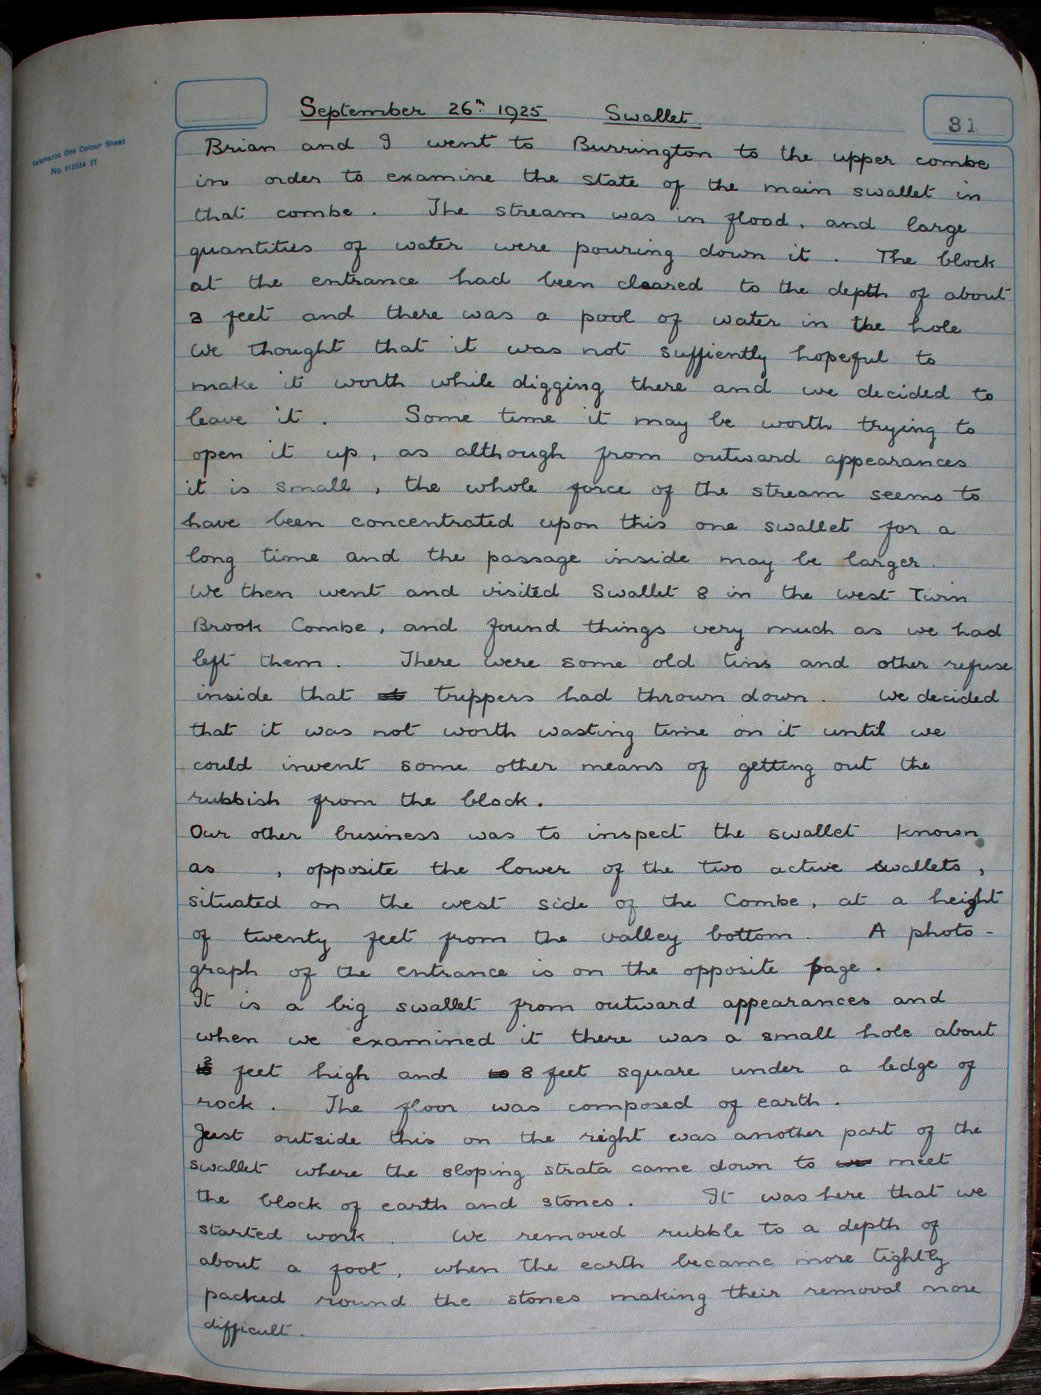 September 26th 1925 Swallet.
31
Kalamazoo One Colour Sheet
No. 812034 ST
Brian and I went to Burrington to the upper combe
in order to examine the state of the main swallet in
that combe. The stream was in flood, and large
quantities of water were pouring down it. The block
at the entrance had been cleared to the depth of about
3 feet and there was a pool of water in the hole
We thought that it was not suffiently hopeful to
make it worth while digging there and we decided to
leave it. Some time it may be worth trying to
open it up, as although from outward appearances
it is small, the whole force of the stream seems to
have been concentrated upon this one swallet for a
long time and the passage inside may be larger.
We then went and visited Swallet 8 in the West Twin
Brook Combe, and found things very much as we had
left them. There were some old tins and other refuse
inside that trippers had thrown down. We decided
that it was not worth wasting time on it until we
could invent some other means of getting out the
rubbish from the block.
Our other business was to inspect the swallet known
as , opposite the lower of the two active swallets,
situated on the west side of the Combe, at a height
of twenty feet from the valley bottom. A photo-
graph of the entrance is on the opposite page.
It is a big swallet from outward appearances and
when we examined it there was a small hole about
2 feet high and 8 feet square under a ledge of
rock. The floor was composed of earth.
Just outside this on the right was another part of the
swallet where the sloping strata came down to meet
the block of earth and stones. It was here that we
started work. We removed rubble to a depth of
about a foot, when the earth became more tightly
packed round the stones making their removal more
difficult.